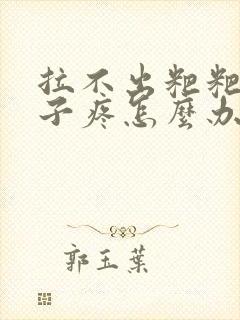 拉不出粑粑
子疼怎麼办
郭玉葉